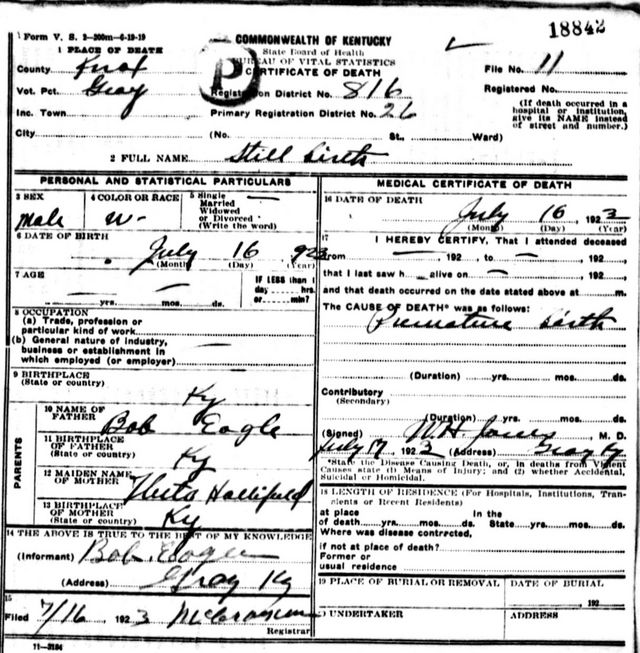 18842
Form V. S. 2-200m-6-19-19
COMMONWEALTH OF KENTUCKY
State Board of Health
BUREAU OF VITAL STATISTICS
CERTIFICATE OF DEATH
1 PLACE OF DEATH
County Knox
Vot. Pct. Gray
Inc. Town
City
P
Registration District No. 816
Primary Registration District No. 26
(No. St., Ward)
File No. 11
Registered No.
(If death occurred in a
hospital or institution,
give its NAME instead
of street and number.)
2 FULL NAME Still birth
PERSONAL AND STATISTICAL PARTICULARS
3 SEX
male
4 COLOR OR RACE
W-
5 Single
Married
Widowed
or Divorced
(Write the word)
6 DATE OF BIRTH
July 16 923
(Month) (Day) (Year)
7 AGE
yrs. mos. ds.
IF LESS than 1
day hrs.
or min?
8 OCCUPATION
(a) Trade, profession or
particular kind of work
(b) General nature of industry,
business or establishment in
which employed (or employer)
9 BIRTHPLACE
(State or country)
Ky
PARENTS
10 NAME OF
FATHER
Bob Eagle
11 BIRTHPLACE
OF FATHER
(State or country)
Ky
12 MAIDEN NAME
OF MOTHER
13 BIRTHPLACE
OF MOTHER
(State or country)
Ky
14 THE ABOVE IS TRUE TO THE BEST OF MY KNOWLEDGE
(Informant) Bob Eagle
(Address) Gray Ky
15
Filed 7/16 1923
Registrar
11-3184
MEDICAL CERTIFICATE OF DEATH
16 DATE OF DEATH
July 16, 1923
(Month) (Day) (Year)
17
I HEREBY CERTIFY, That I attended deceased
from 192 to 192
that I last saw h alive on 192
and that death occurred on the date stated above at m.
The CAUSE OF DEATH* was as follows:
Premature birth
(Duration) yrs. mos. ds.
Contributory
(Secondary)
(Duration) yrs. mos. ds.
(Signed) W H Jones, M. D.
July 17, 1923 (Address) Gray Ky
*State the Disease Causing Death, or, in deaths from Violent
Causes state (1) Means of Injury; and (2) whether Accidental,
Suicidal or Homicidal.
18 LENGTH OF RESIDENCE (For Hospitals, Institutions, Tran-
cients or Recent Residents)
at place In the
of death yrs. mos. ds. State yrs. mos. ds.
Where was disease contracted,
if not at place of death?
Former or
usual residence
19 PLACE OF BURIAL OR REMOVAL
DATE OF BURIAL
192
UNDERTAKER
ADDRESS